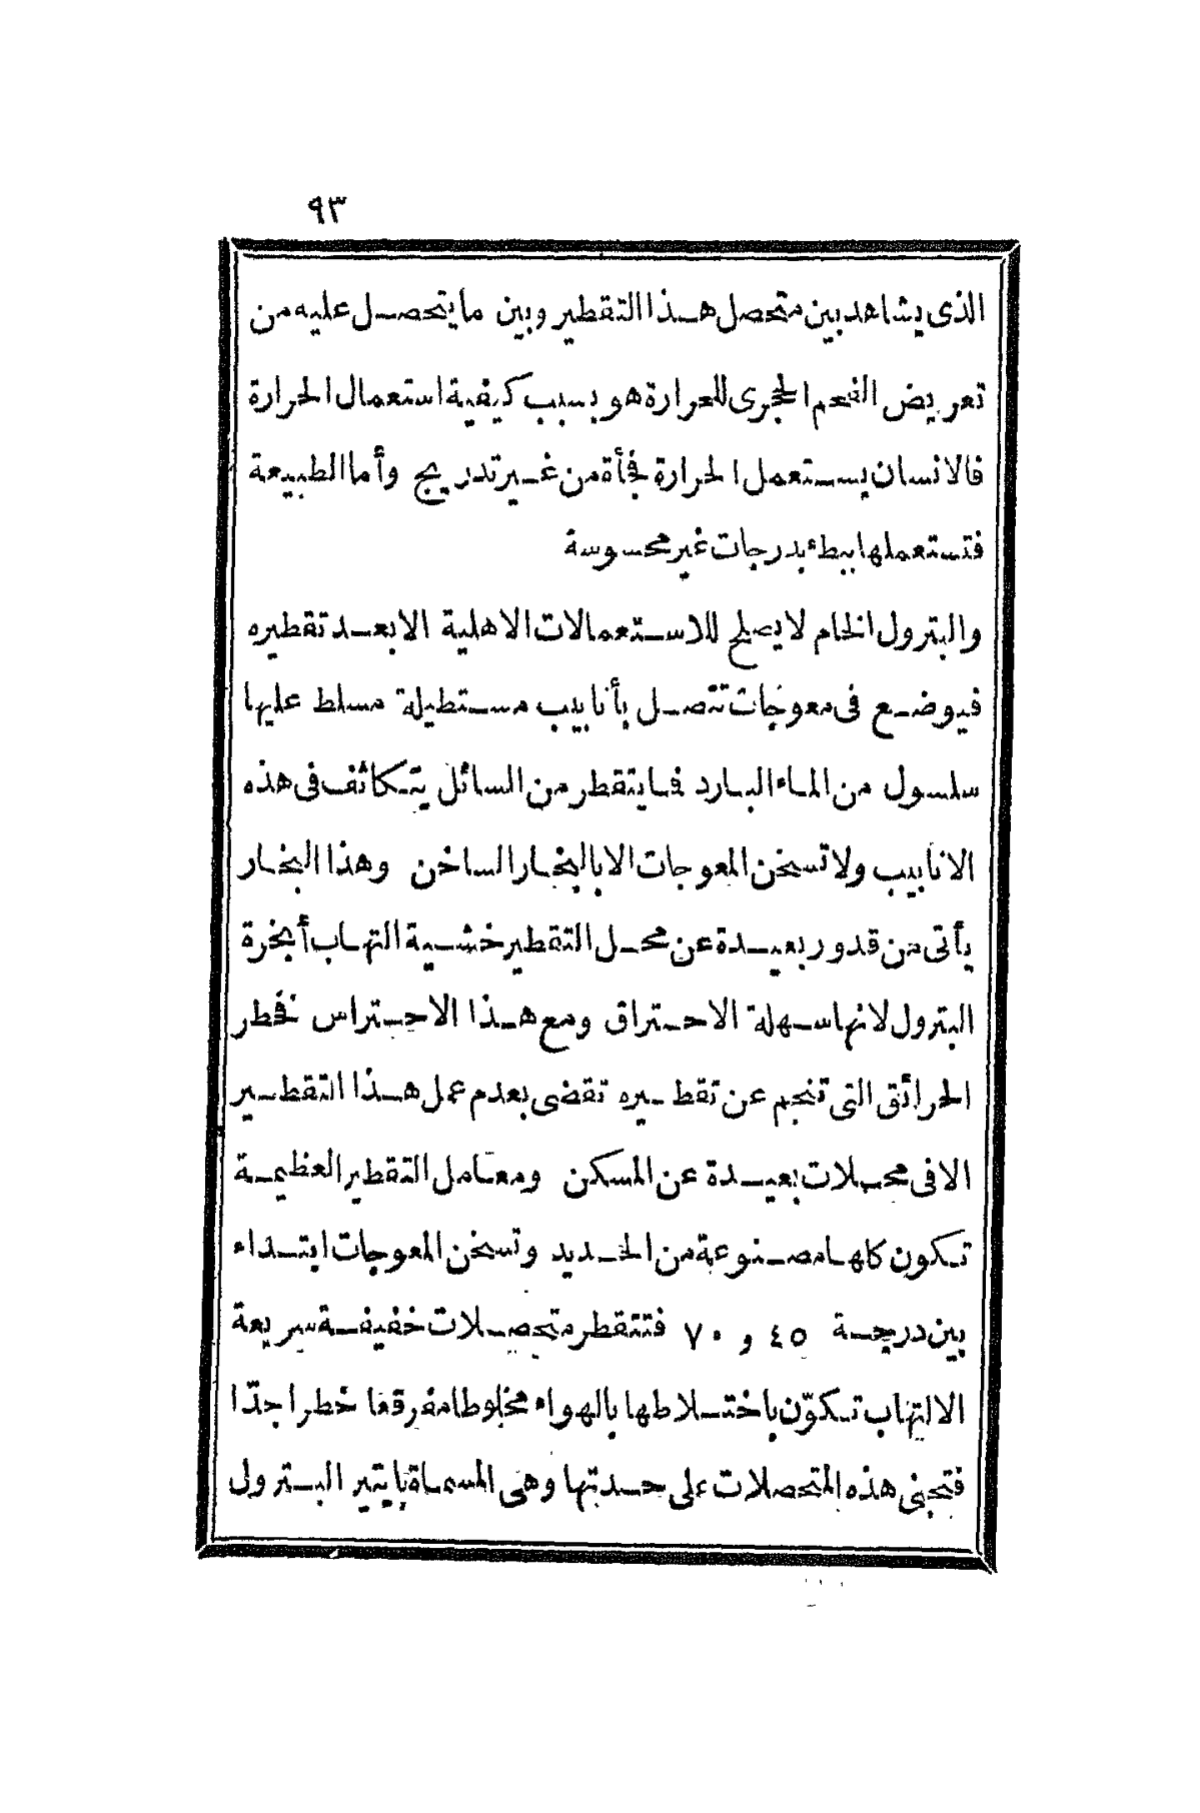 ٩٣
الذى يشاهد بين متحصل هذا التقطير وبين ما يتحصل عليه من
تعريض الفحم الحجرى للحرارة هو بسبب كيفية استعمال الحرارة
فالانسان يستعمل الحرارة فجأة من غير تدريج وأما الطبيعة
فتستعملها ببطء بدرجات غير محسوسة
والبترول الخام لا يصلح للاستعمالات الاهلية الا بعد تقطيره
فيوضع فى معوجات تتصل بأنابيب مستطيلة مسلط عليها
سلسول من الماء البارد فما يتقطر من السائل يتكاثف فى هذه
الانابيب ولا تسخن المعوجات الا بالبخار الساخن وهذا البخار
يأتى من قدور بعيدة عن محل التقطير خشية التهاب أبخرة
البترول لانها سهلة الاحتراق ومع هذا الاحتراس نخطر
الحرائق التى تنجم عن تقطيره تقضى بعدم عمل هذا التقطير
الا فى محلات بعيدة عن المسكن ومعامل التقطير العظيمة
تكون كلها مصنوعة من الحديد وتسخن المعوجات ابتداء
بين درجة ٤٥ و ٧٠ فتتقطر متحصلات خفيفة سريعة
الالتهاب تكوّن باختلاطها بالهواء مخلوطا مفرقعا خطرا جدّا
فتجنى هذه المتحصلات على حدتها وهى المسماة بايتير البترول